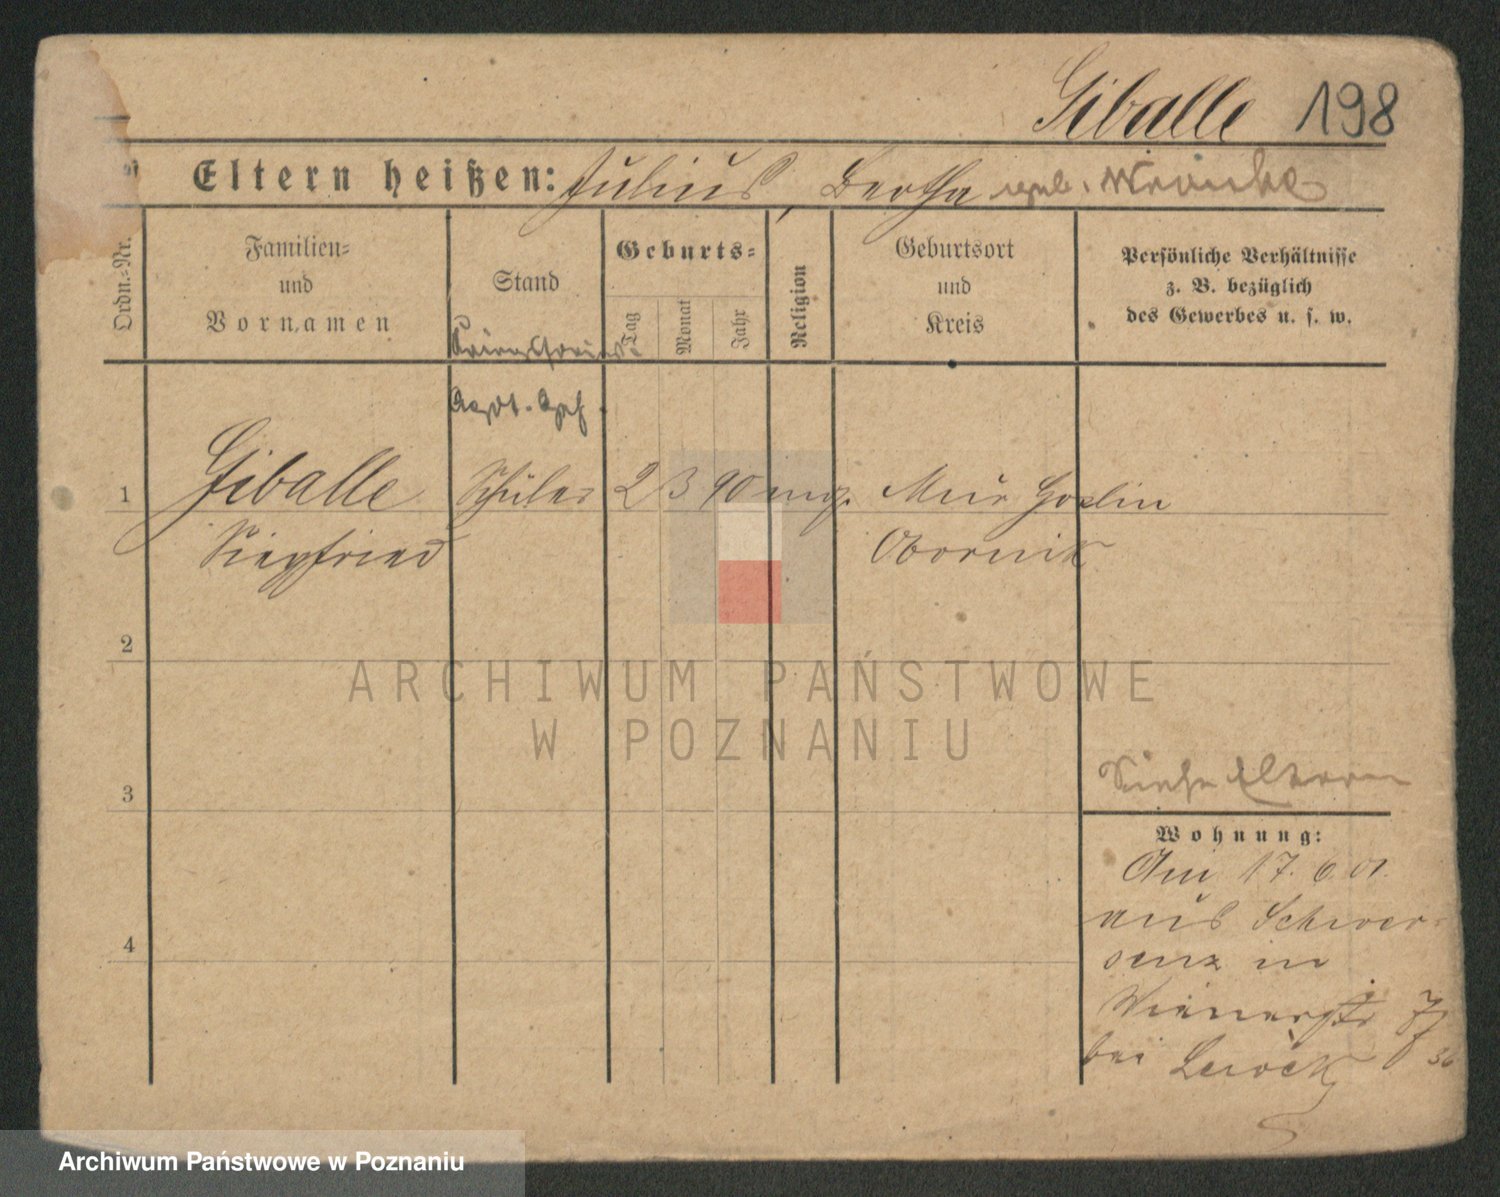 Giballe 198
Eltern heißen: Julius, Bertha geb. Wronke
Ordn.-Nr.
Familien-
und
Vornamen
Stand
Geburts-
Tag
Monat
Jahr
Religion
Geburtsort
und
Kreis
Persönliche Verhältnisse
z. B. bezüglich
des Gewerbes u. s. w.
1 Giballe Schüler 2 3 90 mos. Mur Goslin
Siegfried Obornik
2
ARCHIWUM PAŃSTWOWE
W POZNANIU
Siehe Eltern
3
Wohnung:
Am 17. 6 01.
aus Schwer-
senz in
4
Wienerstr 7
bei
Archiwum Państwowe w Poznaniu